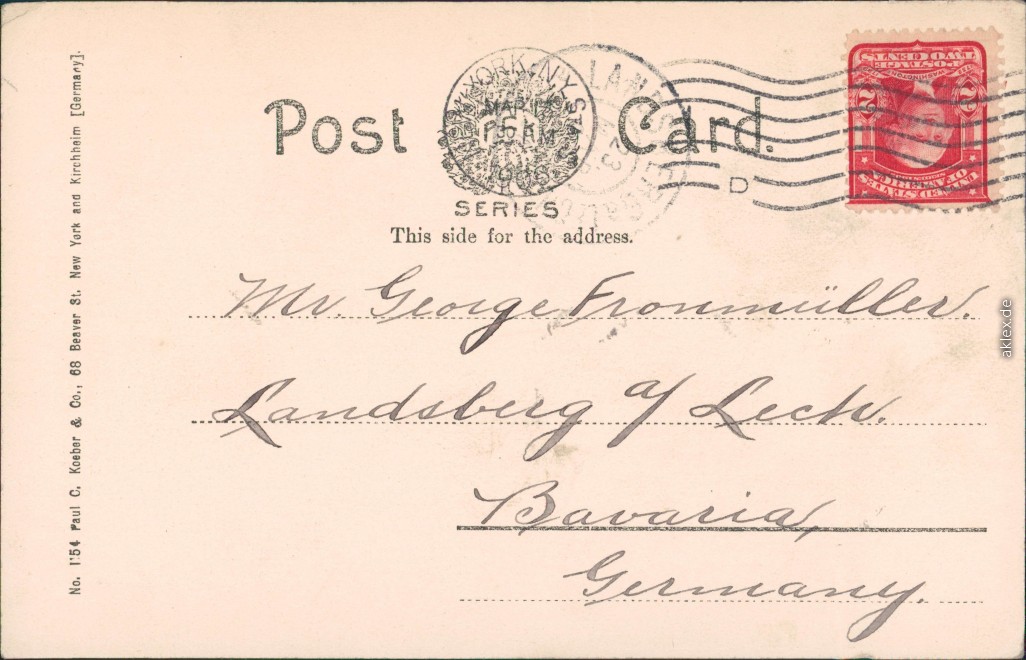 Post Card.
YORK, N.Y. STA
MAR
5
AM
1906
SERIES
LANDSBERG
23
D
UNITED STATES OF AMERICA
POSTAGE
TWO CENTS
2 2
This side for the address.
Mr. George Fronmüller.
Landsberg a/ Lech.
Bavaria,
Germany.
No. 1154 Paul C. Koeber & Co., 68 Beaver St. New York and Kirchheim [Germany].
aklex.de